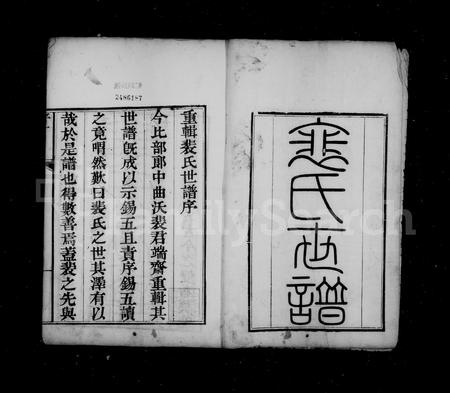 裴氏世譜
重輯裴氏世譜序
今比部郎中曲沃裴君端齋重輯其
世譜既成以示錫五且責序錫五讀
之竟喟然歎曰裴氏之世其澤有以
哉於是譜也得數善焉蓋裴之先與
2486187
FamilySearch